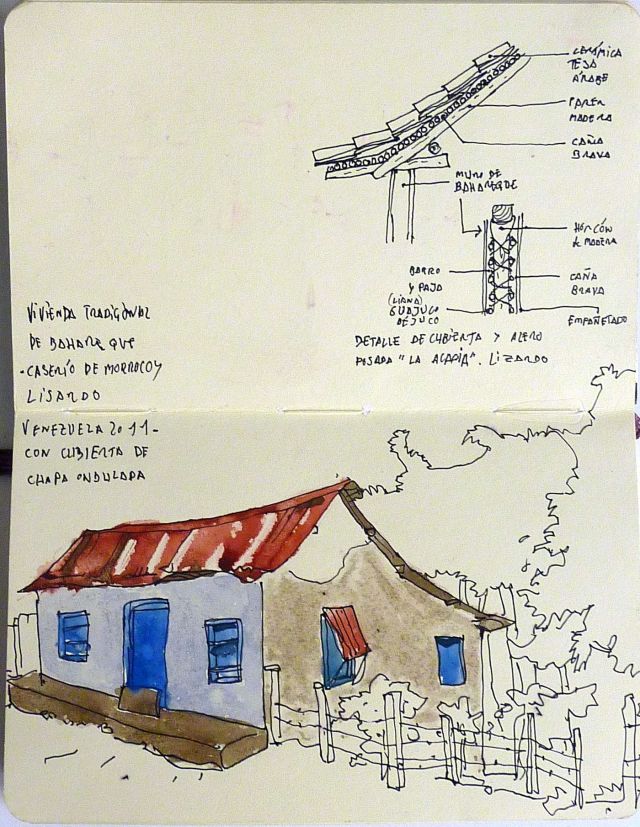 CERÁMICA
TEJA
ÁRABE
PAREN
MADERA
CAÑA
BRAVA
MURO DE
BAHAREQUE
HORCÓN
DE MADERA
BARRO
Y PAJA
(LIANA)
GUAJUCO
BEJUCO
CAÑA
BRAVA
EMPAÑETADO
DETALLE DE CUBIERTA Y ALERO
POSADA "LA ACACIA". LIZARDO
VIVIENDA TRADICIONAL
DE BAHAREQUE
CASERÍO DE MORROCOY
LISARDO
VENEZUELA 2011-
CON CUBIERTA DE
CHAPA ONDULADA